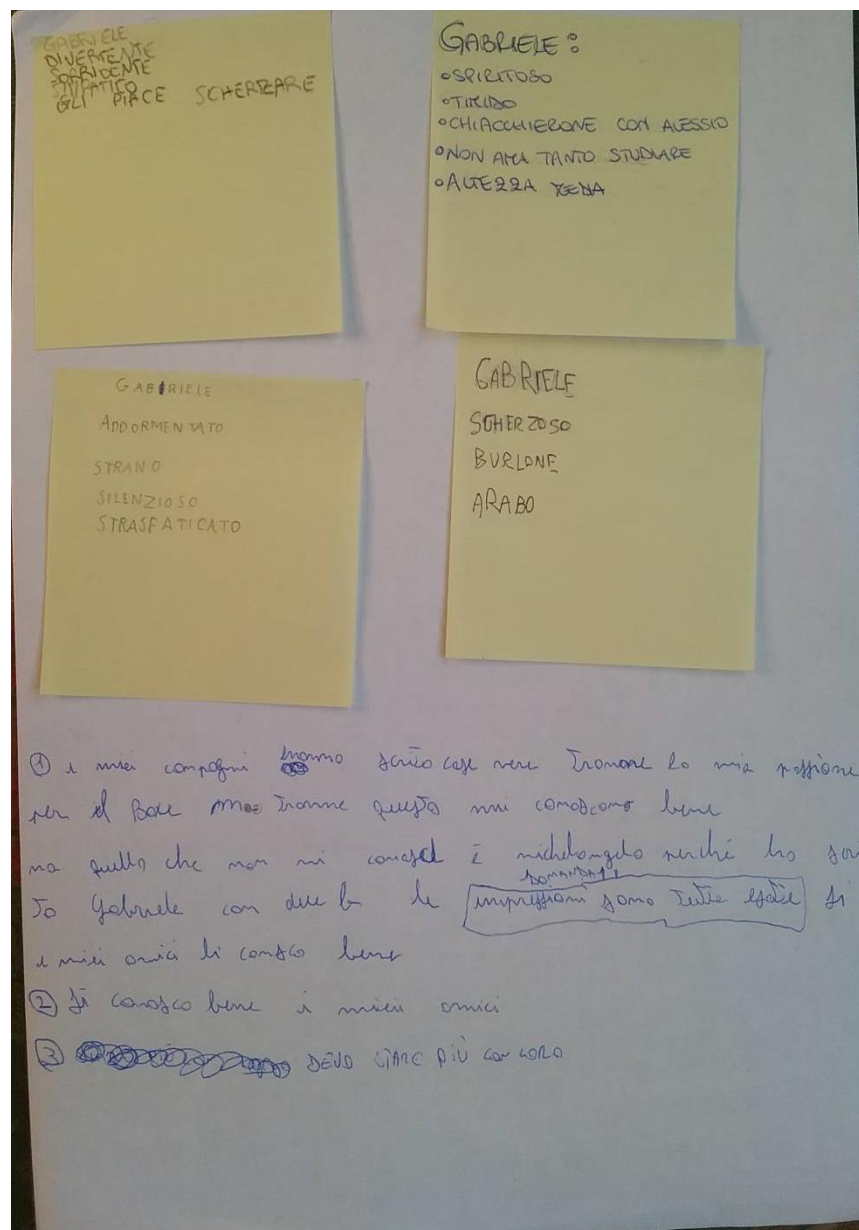 GABRIELE
DIVERTENTE
SORRIDENTE
SIMPATICO
GLI PIACE SCHERZARE
GABRIELE:
SPIRITOSO
TIMIDO
CHIACCHIERONE CON ALESSIO
NON AMA TANTO STUDIARE
ALTEZZA
GABRIELE
ADDORMENTATO
STRANO
SILENZIOSO
STRASFATICATO
GABRIELE
SCHERZOSO
BURLONE
ARABO
① i miei compagni hanno scrito cose vere la mia passione
per il Boxe Tranne questo mi conoscono bene
ma quello che non mi è michelangelo perché ha scri
To Gabriele con due b le impressioni sono Tutte si
DOMANDA 1
i miei amici li bene
② si conosco bene i miei amici
③ DEVO STARE PIÙ CON LORO